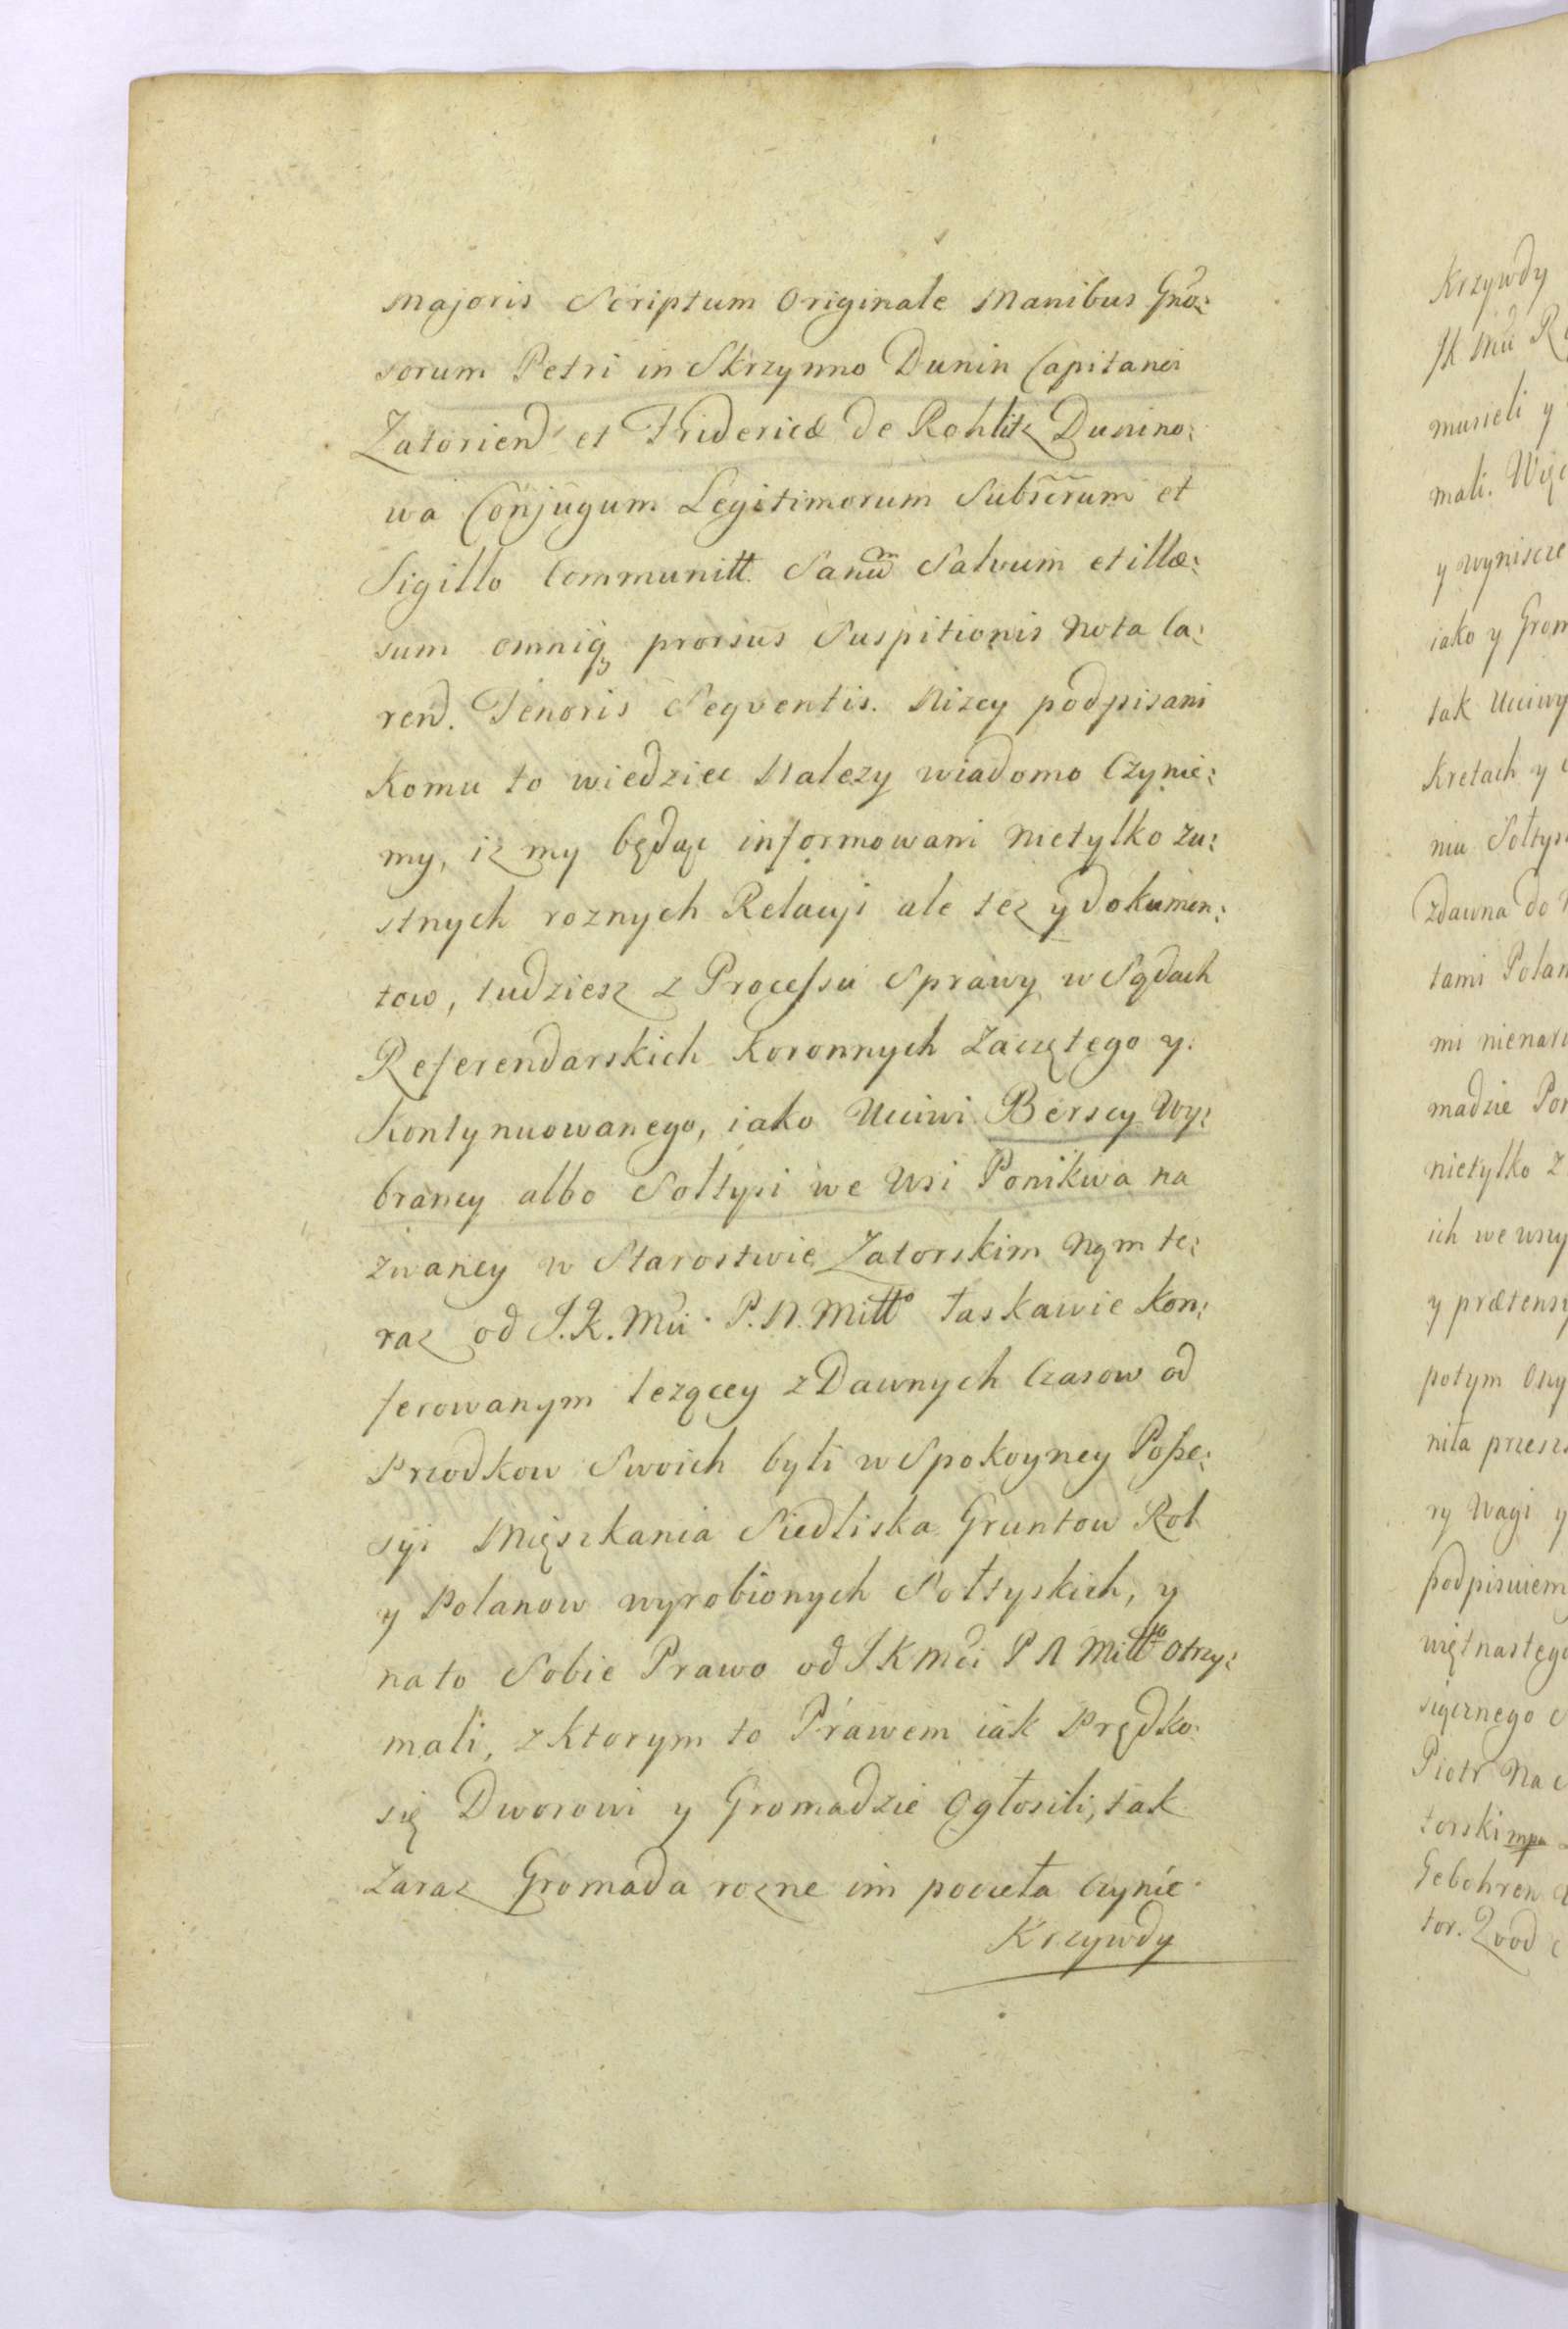 Majoris Scriptum Originale Manibus Gño:
sorum Petri in Skrzynno Dunin Capitanei
Zatorien̄ et Fridericæ de Rohlitz Dunino:
wa Conjugum Legitimorum Subscrum et
Sigillo Communitt. Sanū Salvum et illæ:
sum omniq; prorsus Suspitionis Nota Ca:
ren̄. Tenoris Seqventis. Nizey podpisani
Komu to wiedziec Nalezy wiadomo Czynie:
my, iz my będąc informowani Nietylko zu:
stnych roznych Relacyi ale tez y dokumen:
tow, tudziesz z Processu Sprawy w Sądach
Referendarskich Koronnych Zaczętego y
Kontynuowanego, iako Uczciwi Berscy Wy:
brancy albo Sołtysi we Wsi Ponikwa na
zwaney w Starostwie Zatorskim Nam te:
raz od J. K. Mci P. N. Miłł° łaskawie kon:
ferowanym lezącey z Dawnych Czasow od
Przodkow Swoich byli w Spokoyney Posse:
syi Mięszkania Siedliska Gruntow Rol
y Polanow wyrobionych Sołtyskich, y
na to Sobie Prawo od J K Mci P N Miłł° Otrzy:
mali, z ktorym to Prawem iak Prędko
się Dworowi y Gromadzie Ogłosili, tak
Zaraz Gromada rozne im poczeła Czynic
Krzywdy
Krzywdy
musieli y
mali.
y wyniscze
iako y Grom
tak Uczciwy
Kretach y
niu Sołtys
zdawna do
tami Polan
mi
madzie Pon
nietylko z
ich we wszy
y prætensy
potym Ony
niła przesz
ry Wagi y
podpisuiem
więtnastego
siącznego
Piotr Na
torski mpa
Gebohren
tor.